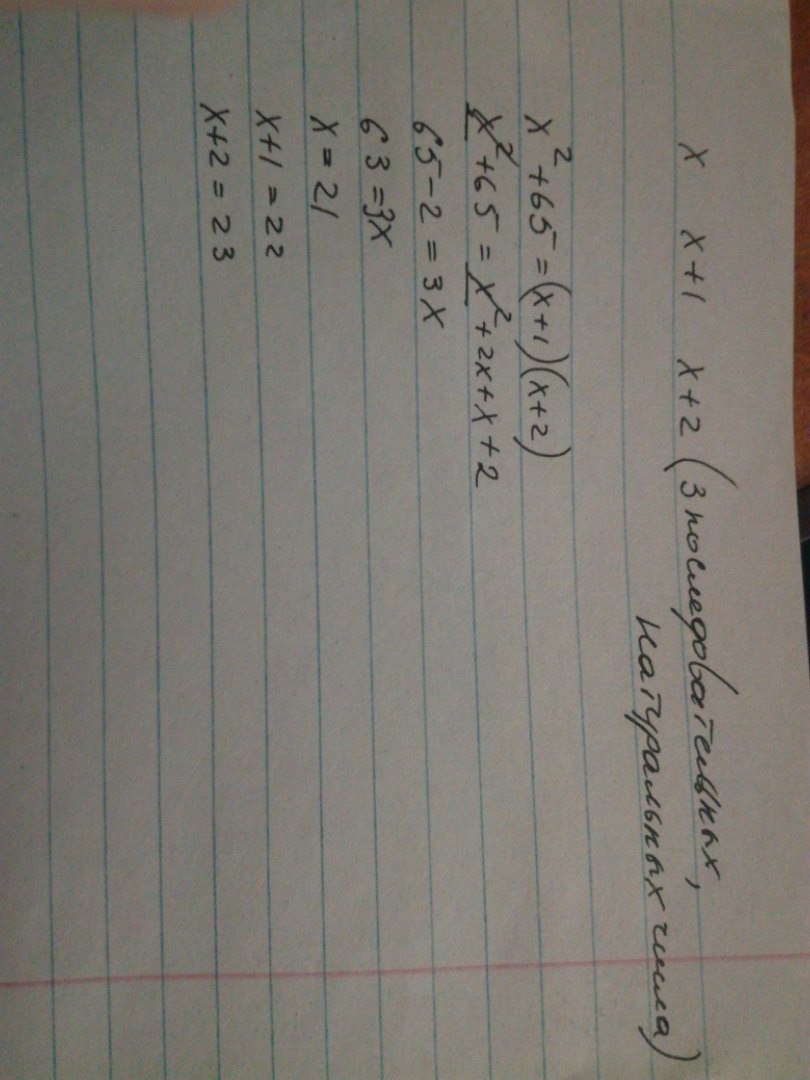 x x+1 x+2 (3 последовательных,
натуральных числа)
x²+65=(x+1)(x+2)
x²+65=x²+2x+x+2
65-2=3x
63=3x
x=21
x+1=22
x+2=23